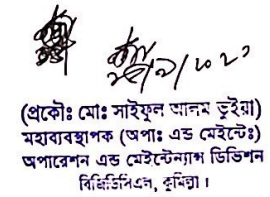 (প্রকৌঃ মোঃ সাইফুল আলম ভুইয়া)
মহাব্যবস্থাপক (অপাঃ এন্ড মেইন্টেঃ)
অপারেশন এন্ড মেইন্টেন্যান্স ডিভিশন
বিজিডিসিএল, কুমিল্লা।